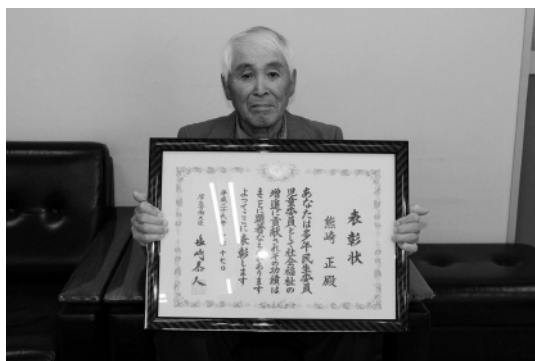 表彰状
熊崎 正 殿
あなたは多年民生委員
児童委員として社会福祉の
増進に貢献されその功績は
まことに顕著なものがあります
よってここに表彰します
平成二十八年 十七日
厚生労働大臣 塩崎恭久